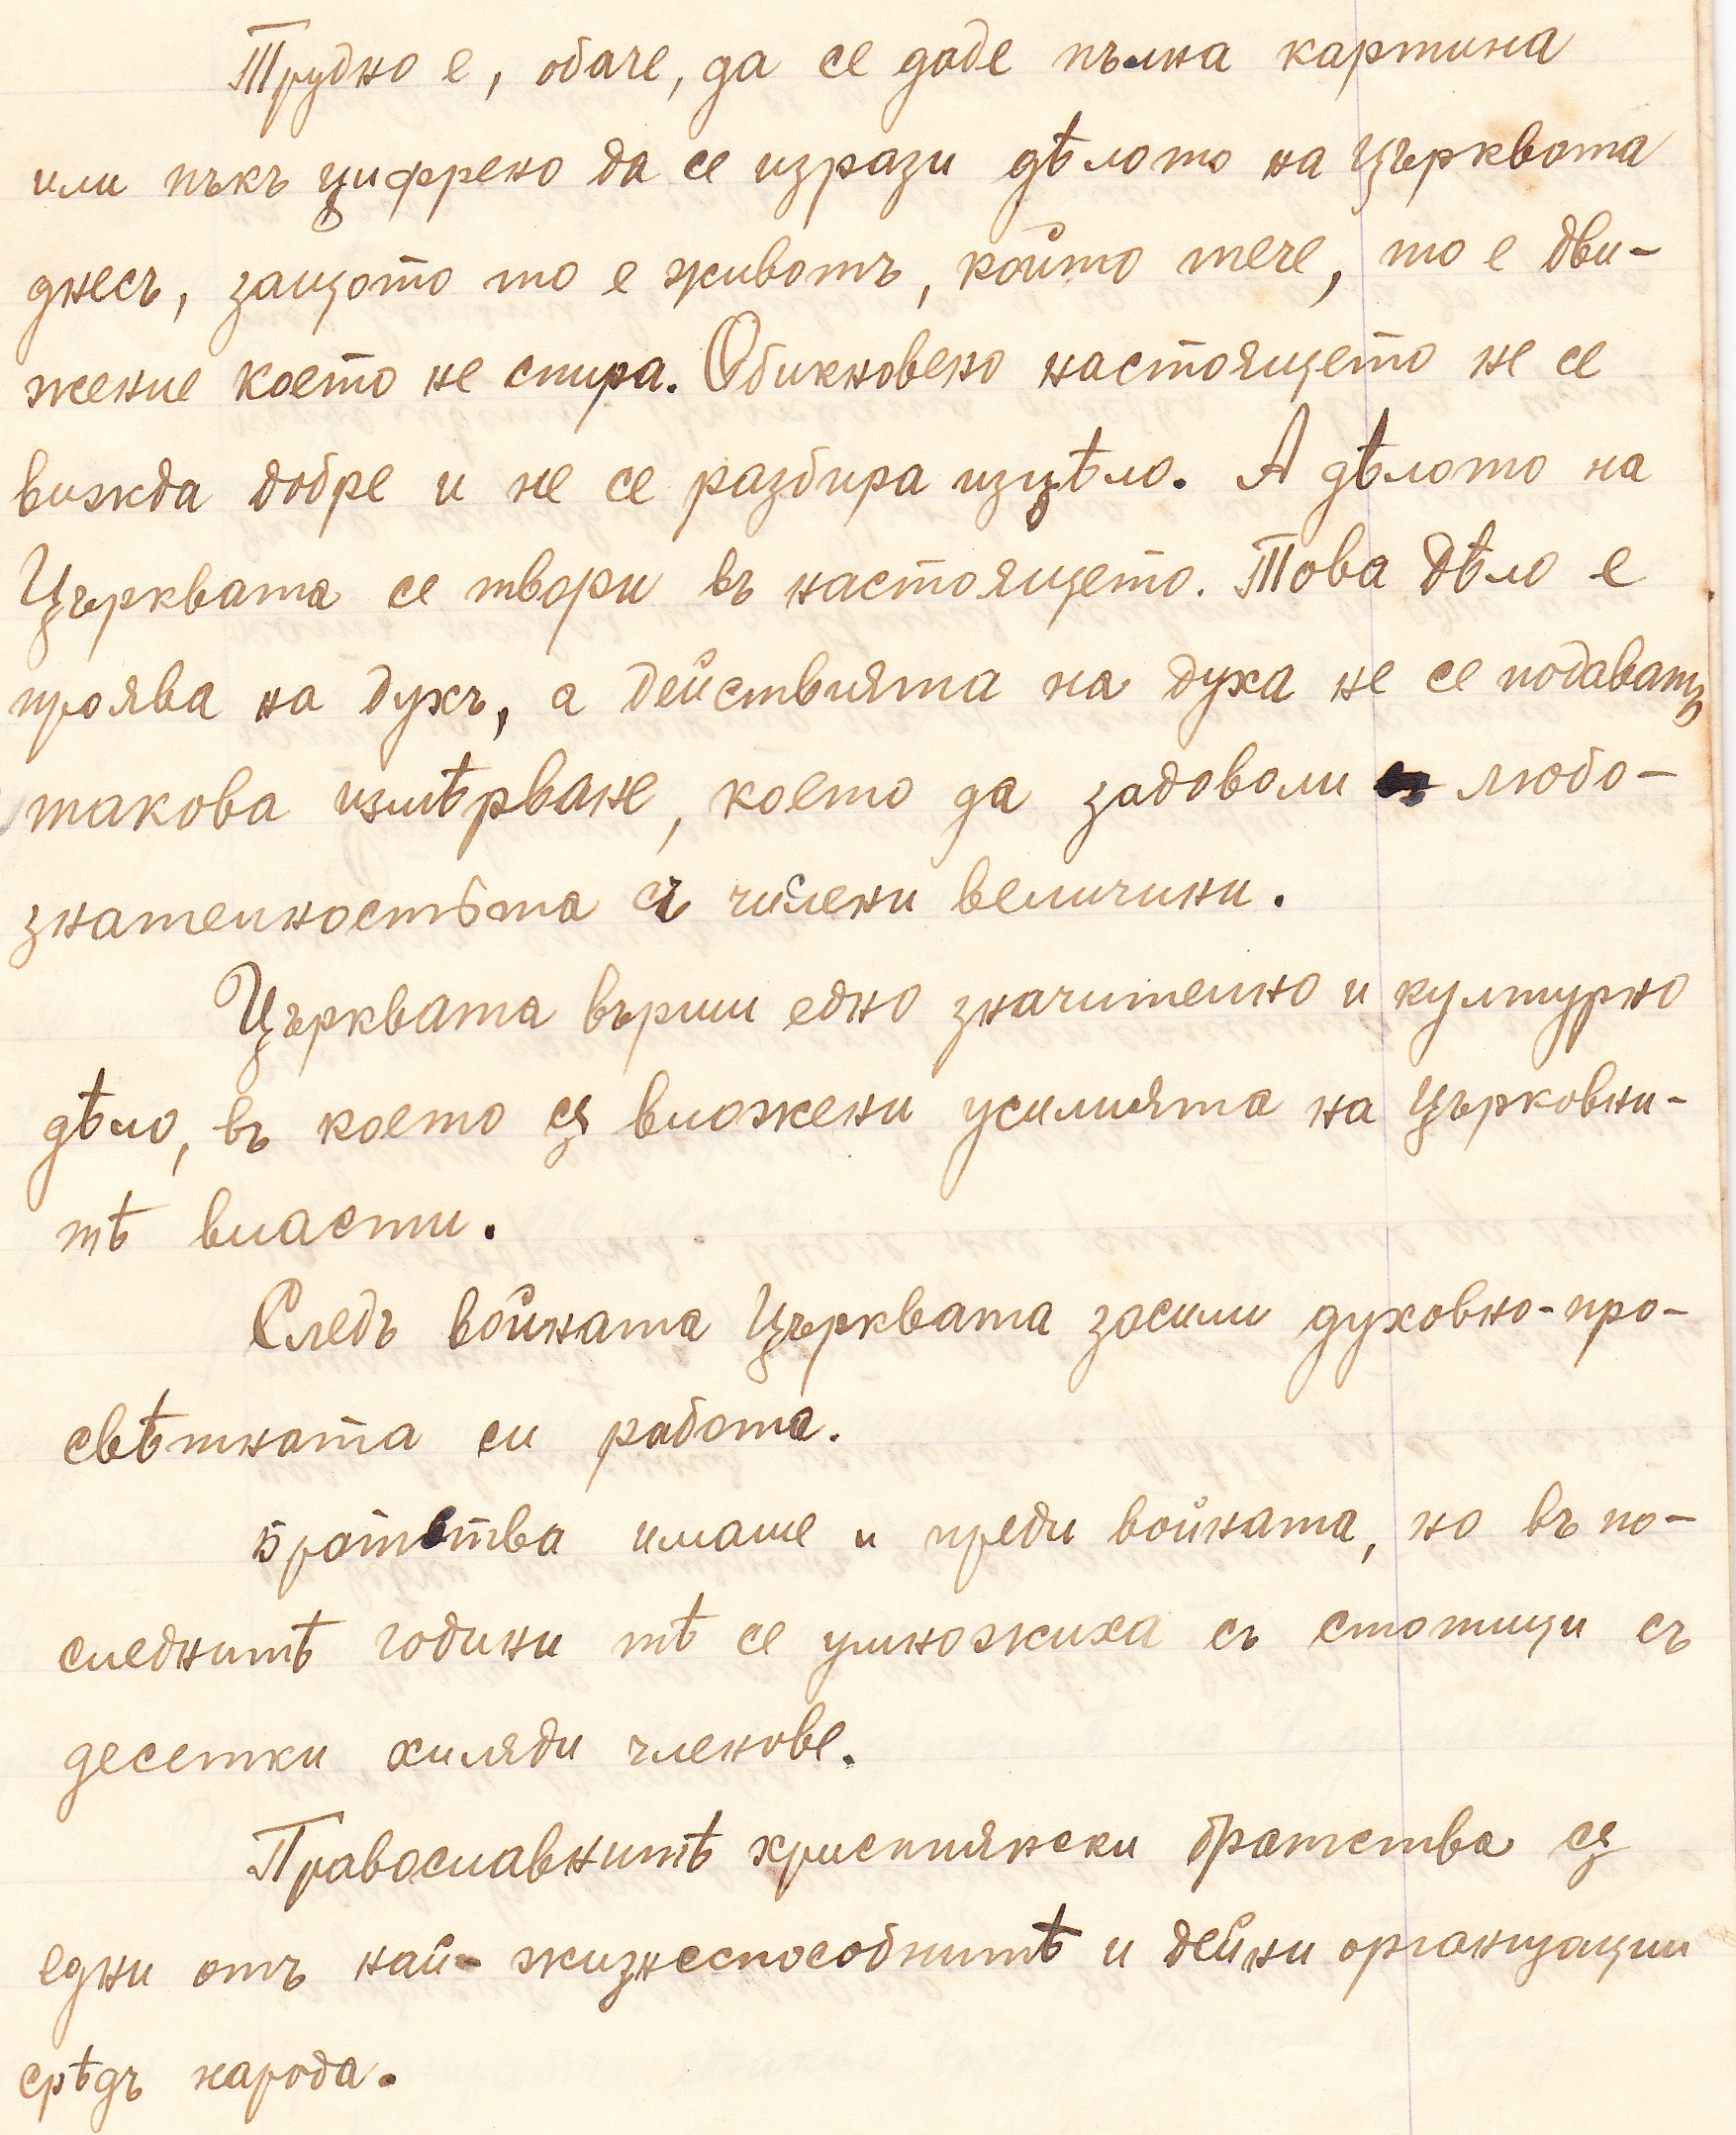 Трудно е, обаче, да се даде пълна картина
или пъкъ цифрено да се изрази дѣлото на Църквата
днесъ, защото то е животъ, който тече, то е дви-
жение което не спира. Обикновено настоящето не се
вижда добре и не се разбира изцѣло. А дѣлото на
Църквата се твори въ настоящето. Това дѣло е
проява на духъ, а действията на духа не се подаватъ
такова измѣрване, което да задоволи любо-
знателностьта съ числени величини.
Църквата върши едно значително и културно
дѣло, въ което сѫ вложени усилията на църковни-
тѣ власти.
Следъ войната Църквата засили духовно-про-
свѣтната си работа.
Братства имаше и преди войната, но въ по-
следнитѣ години тѣ се умножиха съ стотици съ
десетки хиляди членове.
Православнитѣ християнски братства сѫ
едни отъ най-жизнеспособнитѣ и дейни организации
срѣдъ народа.